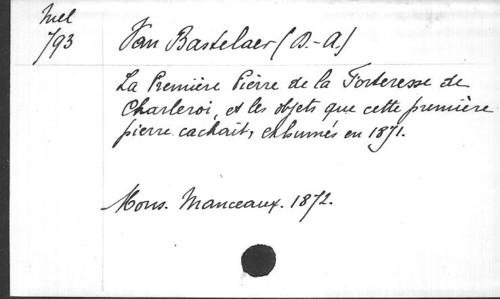 Mel
793
Van Bastelaer (D.-A.)
La Première Pierre de la Forteresse de
Charleroi, et les objets que cette première
pierre cachait, exhumés en 1871.
Mons. Manceaux. 1872.